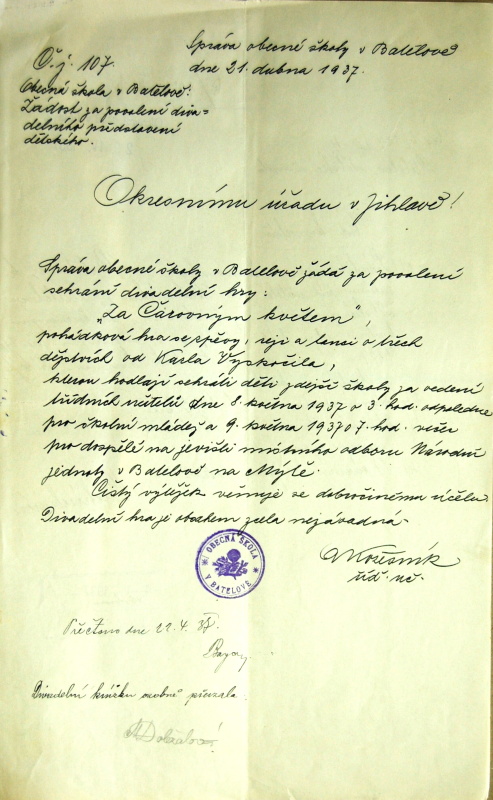 Č.j. 107.
Správa obecné školy v Batelově
dne 21. dubna 1937.
Obecná škola v Batelově:
Žádost za povolení diva-
delního představení
dětského.
Okresnímu úřadu v Jihlavě!
Správa obecné školy v Batelově žádá za povolení
sehrání divadelní hry:
"Za Čarovným květem",
pohádková hra se zpěvy, reji a tanci o třech
dějstvích od Karla Vyskočila,
kterou hodlají sehráti děti zdejší školy za vedení
třídních učitelů dne 8. května 1937 o 3. hod. odpoledne
pro školní mládež a 9. května 1937 o 7. hod. večer
pro dospělé na jevišti místního odboru Národní
jednoty v Batelově na Mýtě.
Čistý výtěžek věnuje se dobročinému účelu.
Divadelní hra je obsahem zcela nezávadná.
OBECNÁ ŠKOLA
V BATELOVĚ
říd. uč.
Přečteno dne 22.4.37.
Divadelní knížku osobně převzala: